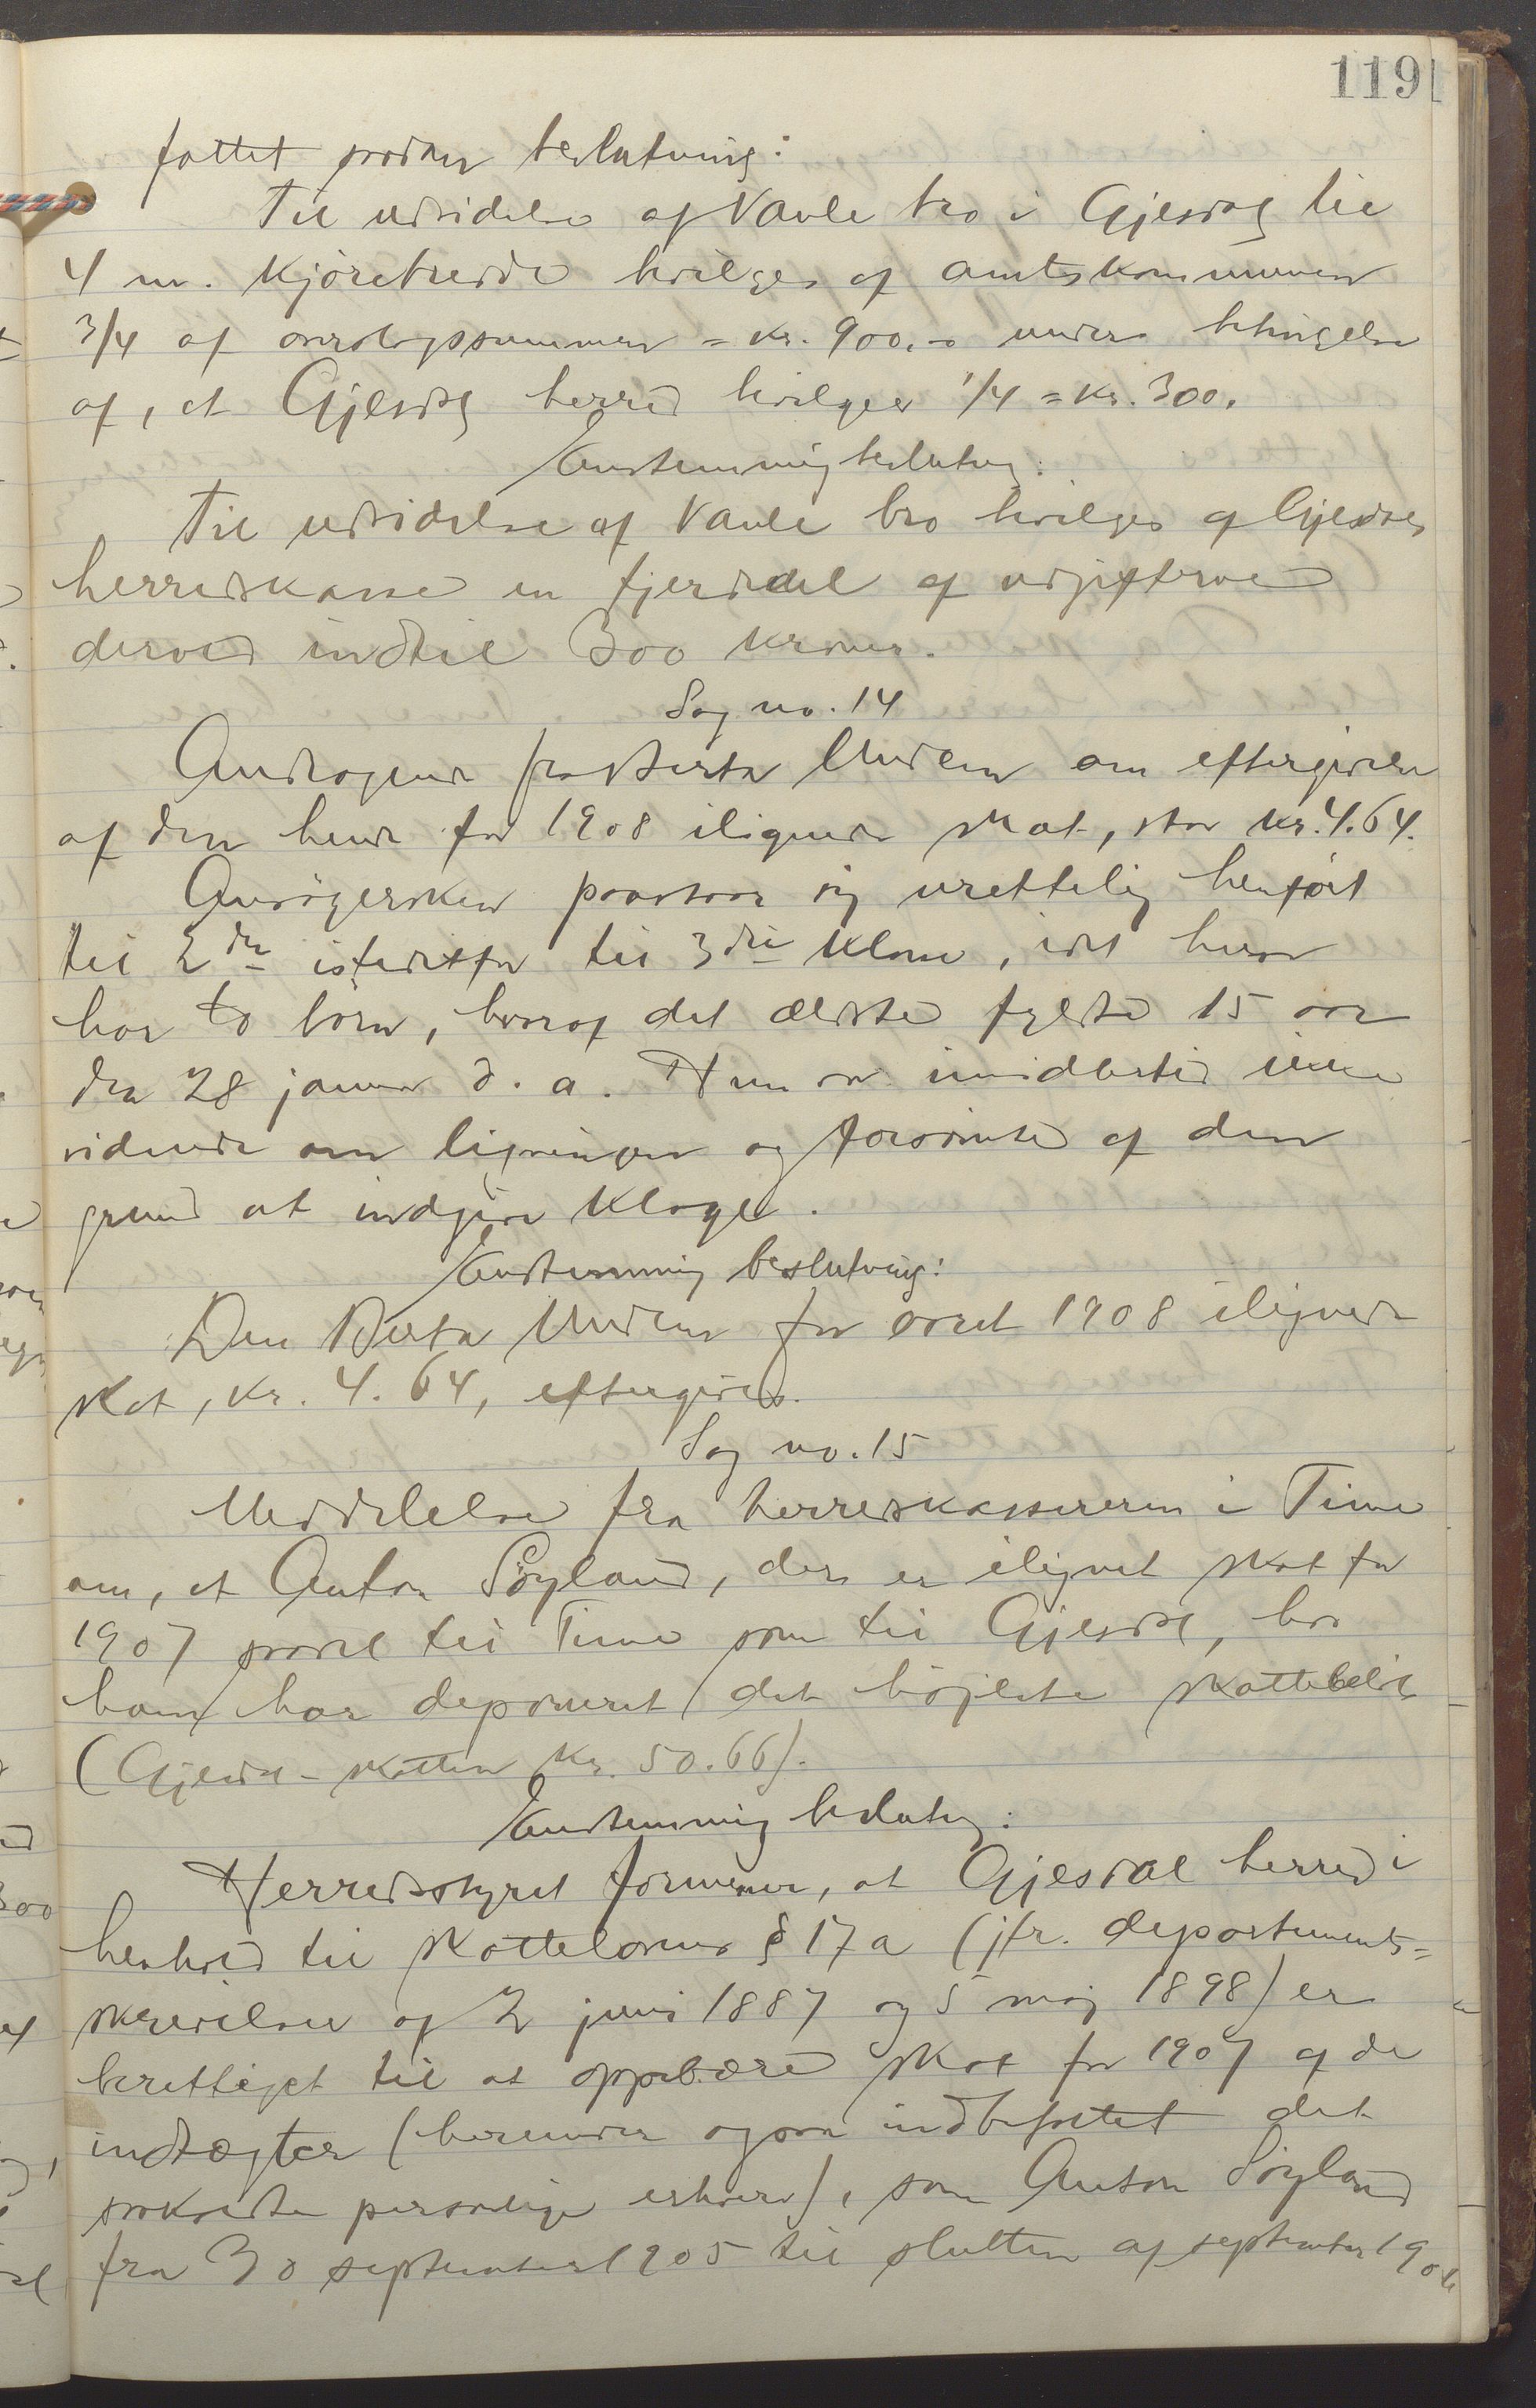 119
fattet saadan beslutning:
Til udvidelse af Vaule bro i Gjesdal til
4 m. kjørebredde bevilges af amtskommunen
3/4 af overslagssummen = kr. 900,- under betingelse
af, at Gjesdal herred bevilger 1/4 = kr. 300.
Enstemmig beslutng:
Til udvidelse af Vaule bro bevilges af Gjesdal
herredskasse en fjerdedel af udgifterne
derved indtil 300 kroner.
Sag no. 14
Andragende fra Berta Madland om eftergivelse
af den hende for 1908 ilignede skat, stor kr. 4.64.
Ansøgersken paastaar sig urettelig henført
til 2den istedetfor til 3die klasse, idet hun
har to børn, hvoraf det ældste fyldte 15 aar
den 28 januar d. a. Hun var imidlertid ikke
vidende om ligningen og forsømte af den
grund at indgive klage.
Enstemmig beslutning:
Den Berta for aaret 1908 ilignede
skat, kr. 4.64, eftergives.
Sag no. 15
Meddelelse fra herredskassereren i Time
om, at Anton Søyland, der er ilignet skat for
1907 saavel til Time som til Gjesdal, hos
ham har deponeret det høieste skattebeløb
(Gjesdal-skatten kr. 50.66).
Enstemmig beslutng:
Herredsstyret formener, at Gjesdal herred i
henhold til skattelovens § 17 a (jfr. departements=
skrivelser af 2 juni 1887 og 5 maj 1898) er
berettiget til at oppebære skat for 1907 af de
indtægter (herunder ogsaa indbefattet det
saakaldte personlige erhverv), som Anton Søyland
fra 30 september 1905 til slutten af september 1906